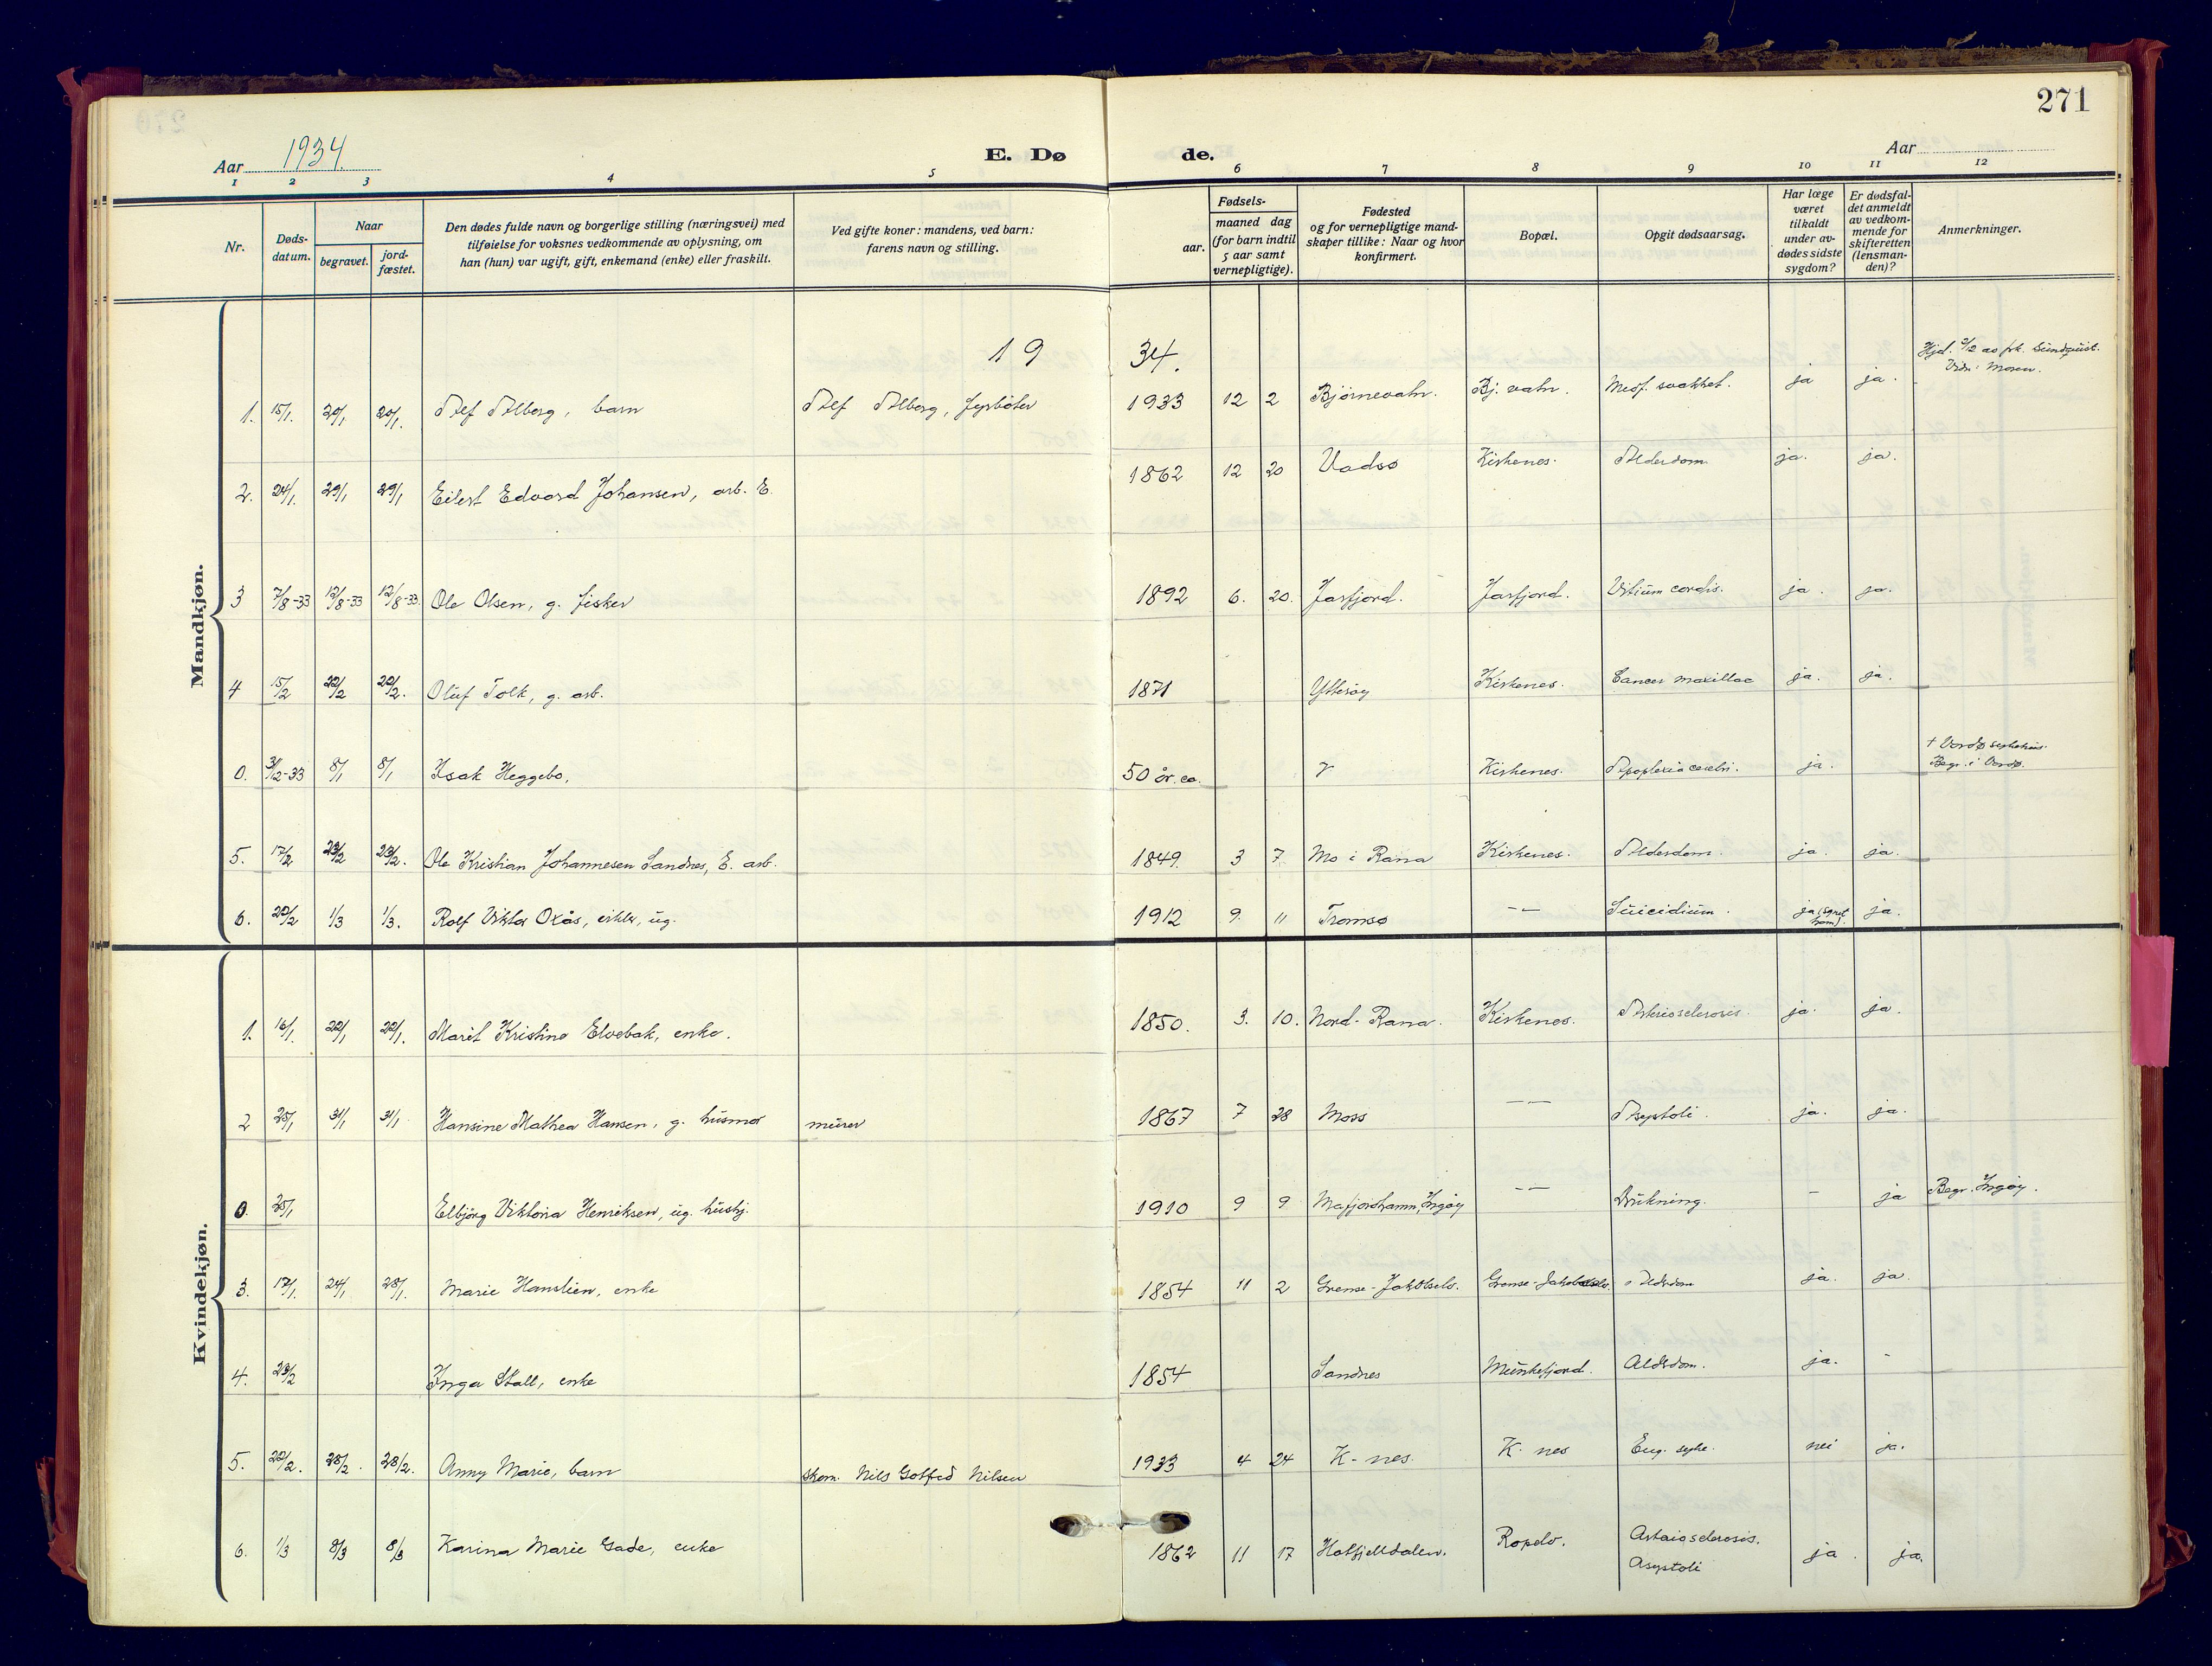 271
Aar 1934. E. Dø de. Aar
1 2 3 4 5 6 7 8 9 10 11 12
Nr. Døds-datum. Naar begravet. jord-fæstet. Den dødes fulde navn og borgerlige stilling (næringsvei) med tilføielse for voksnes vedkommende av oplysning, om han (hun) var ugift, gift, enkemand (enke) eller fraskilt. Ved gifte koner: mandens, ved barn: farens navn og stilling. Fødsels- aar. maaned dag (for barn indtil 5 aar samt vernepligtige). Fødested og for vernepligtige mand-skaper tillike: Naar og hvor konfirmert. Bopæl. Opgit dødsaarsag. Har læge været tilkaldt under av-dødes sidste sygdom? Er dødsfal-det anmeldt av vedkom-mende for skifteretten (lensman-den)? Anmerkninger.
Mandkjøn.
1934.
1. 15/1. 20/1 20/1. Alf Alberg, barn Alf Alberg, fyrbøter 1933 12 2 Bjørnevatn. Bj. vatn. Medf. svakhet. ja ja. Hjd. av frk. Sundquist. Moren.
2. 24/1. 29/1 29/1 Eilert Edvard Johansen, arb. E. 1862 12 20 Vadsø Kirkenes. Alderdom ja. ja.
3 7/8-33 12/8-33 12/8-33. Ole Olsen, g. fisker 1892 6. 20. Jarfjord. Jarfjord. Vitium cordis. ja. ja.
4 15/2 22/2 22/2. Oluf Tolk, g. arb. 1871 Ytterøy Kirkenes. Cancer maxillae ja. ja.
0. 31/12-33 8/1 8/1 Isak Heggebo, 50 år. ca. ? Kirkenes. Apoplexia cerebri. ja. † Vardø sykehus. Begr. i Vardø.
5. 17/2 23/2 23/2. Ole Kristian Johannesen Sandnes, E. arb. 1849. 3 7 Mo i Rana Kirkenes. Alderdom. ja. ja.
6. 20/2 1/3 1/3. Rolf Viktor Oxås, ug. 1912 9. 11 Tromsø -- Suicidium. ja ja.
Kvindekjøn.
1. 16/1. 22/1 22/1. Marit Kristine Elvebak, enke. 1850. 3. 10. Nord-Rana. Kirkenes. Arteriosclerosis. ja. ja.
2 25/1 31/1 31/1 Hansine Mathea Hansen, g. husmor murer 1867 7 28 Moss -- Asystoli. ja. ja.
0. 25/1 Elbjörg Viktoria Henriksen, ug. hushj. 1910 9 9 Mafjordhamn, Ingöy -- Drukning. - ja Begr. Ingöy.
3. 17/1. 24/1 28/1. Marie Hanslien, enke 1854 11 2 Grense-Jakobselv. Grense-Jakobselv. Alderdom ja. ja.
4. 23/2 Inga Stall, enke 1854 Sandnes Munkefjord. Alderdom. ja. -
5. 22/2. 28/2. 28/2. Anny Marie, barn skom. Nils Gotfred Nilsen 1933 4 24 K-nes. K-nes Eng. syke. nei ja.
6. 1/3 8/3 8/3 Karina Marie Gade, enke 1862 11 17 Hatfjelldalen. Ropelv. Arteriosclerosis. Asystoli ja. ja.